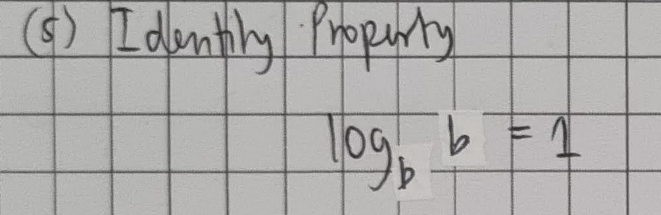 (5) Identity Property
log_b b = 1